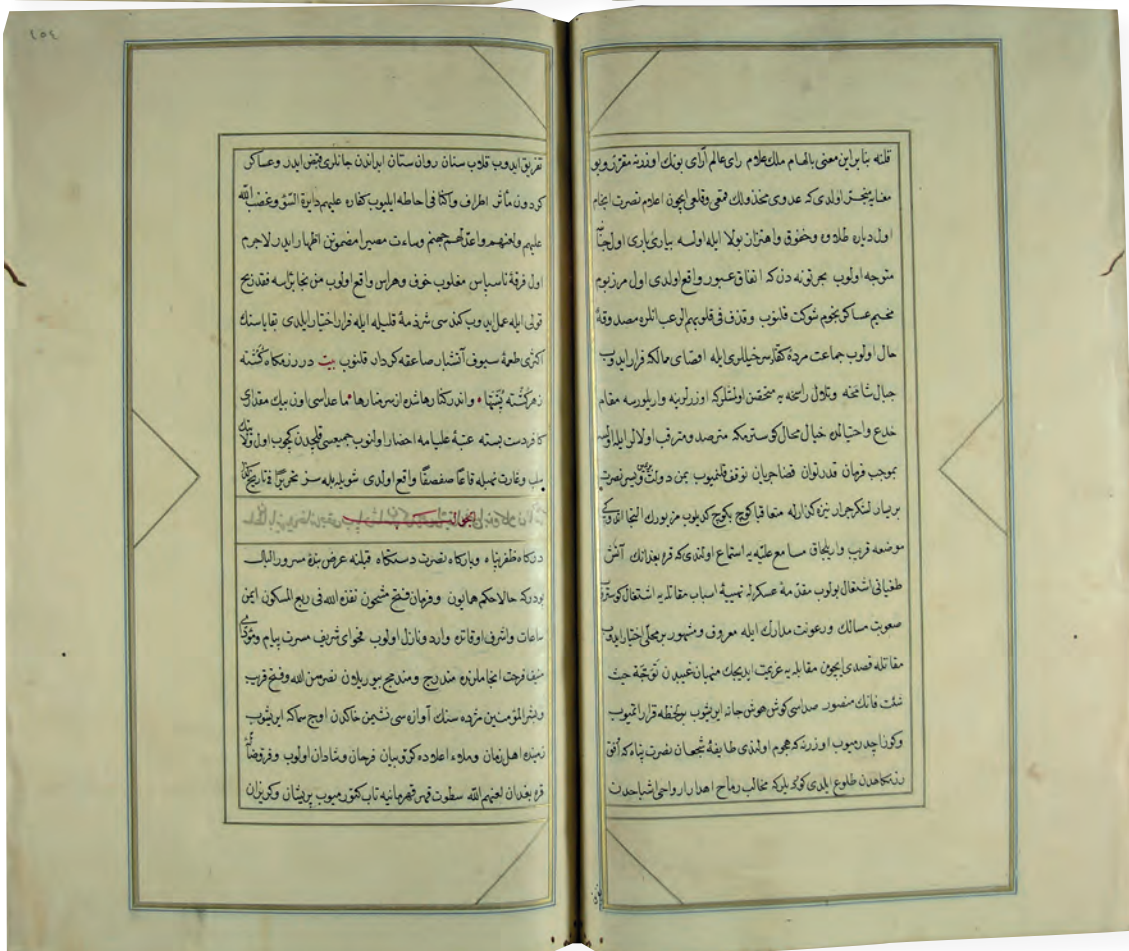 قلنه بنا براین معنی بالهام ملك علام رای عالم آرای بونك اوزرینه مقرر و بو
معنایه منجر اولدی که عدوی مخذولك قمعی و قلعی ایچون اعلام نصرت انجام
اول دیاره طلاوه و خفوق و اهتزان بولا ایله اولسه بیاری باری اول جنا
متوجه اولوب بحر تونه دن که اتفاق عبور واقع اولدی اول مرزبوم
مخیم عساکر نجوم شوکت قلنوب و قذف فی قلوبهم الرعب انلره مصدوقهٔ
حال اولوب جماعت مردهٔ کفار سرخیللری ایله اقصای ممالکه فرار ایدوب
جبال شامخه و تلال راسخه یه متحصن اولمشلرکه اوزرلرینه واریلورسه مقام
خدع و احتیالده خیال محال کوسترمکه مترصد و مترقب اولالر ایله اولسه
بموجب فرمان قدرتوان قضا جریان توقف قلنمیوب یمن دولت و یسر نصرت
بربیار لشکر جرار نیزه کذارله متعاقبا کوچ بکوچ کدیلوب مزبورك التجا ایتدوکی
موضعه قریب واریلجاق مسامع علیّه یه استماع اولندی که قره بغدانك آتش
طغیانی اشتعال بولوب مقدمهٔ عسکرله تهیهٔ اسباب مقاتله یه اشتغال کوستروب
صعوبت مسالك و رعونت مدارك ایله معروف و مشهور بر محلی اختیار ایدوب
مقاتله قصدی ایچون مقابله یه عزیمت ایدیجك منهیان غیبدن توجّه حیث
شئت فانك منصور صداسی کوش هوش جانه ایریشوب بر لحظه قرار اتمیوب
و کوز آچدرمیوب اوزرینه هجوم اولندی طایفهٔ شجعان نصرت پناه که افق
رزمکاهدن طلوع ایلدی کویا که مخالب رماح اهدا ارواحی اشباحدن
٤٥٤
تفریق ایدوب قلاب سنان روان ستان ابداندن جانلری قبض ایدر و عساکر
کردون مآثر اطراف و اکنافی احاطه ایلیوب کفاره علیهم دایرة السوء و غضب الله
علیهم و لعنهم و اعدّ لهم جهنم و ساءت مصیرا مضمونین اظهار ایدر لاجرم
اول فرقهٔ ناسپاس مغلوب خوف و هراس واقع اولوب من نجا برأسه فقد ربح
قولی ایله عمل ایدوب کندسی شرذمهٔ قلیله ایله فرار اختیار ایلدی بقایاسنك
اکثری طعمهٔ سیوف آتشبار صاعقه کردار قلنوب بیت در رزمکاه کشته
زهر کشته پشتها • واندر کنارها شده از سر منارها • ماعداسی اون بیك مقداری
کافر دست بسته عتبهٔ علیامه احضار اولنوب جمیعسی قلیچدن کچوب اول ولایتك
نهب و غارت نهیله قاعا صفصفا واقع اولدی شویله بیله سز تحریرا فی تاریخ
درکاه ظفرپناه و بارکاه نصرت دستکاه قبلنه عرض بندهٔ مسرور البال
بودرکه حالا حکم همایون و فرمان فتح مشحون نفذه الله فی ربع المسکون ایمن
ساعات و اشرف اوقاتده وارد و نازل اولوب فحوای شریف مسرت پیام و مؤدای
منیف فرحت انجاملرنده مندرج و مندمج بیوریلان نصر من الله و فتح قریب
و بشر المؤمنین مژده سنك آوازه سی نشیمن خاکدن اوج سماکه ایریشوب
زمیننده اهل زمان و ملاء اعلاده کروبیان فرحان و شادان اولوب
قره بغدان لعنهم الله سطوت قهر قهرمانیه تاب کتورمیوب پریشان و کریزان